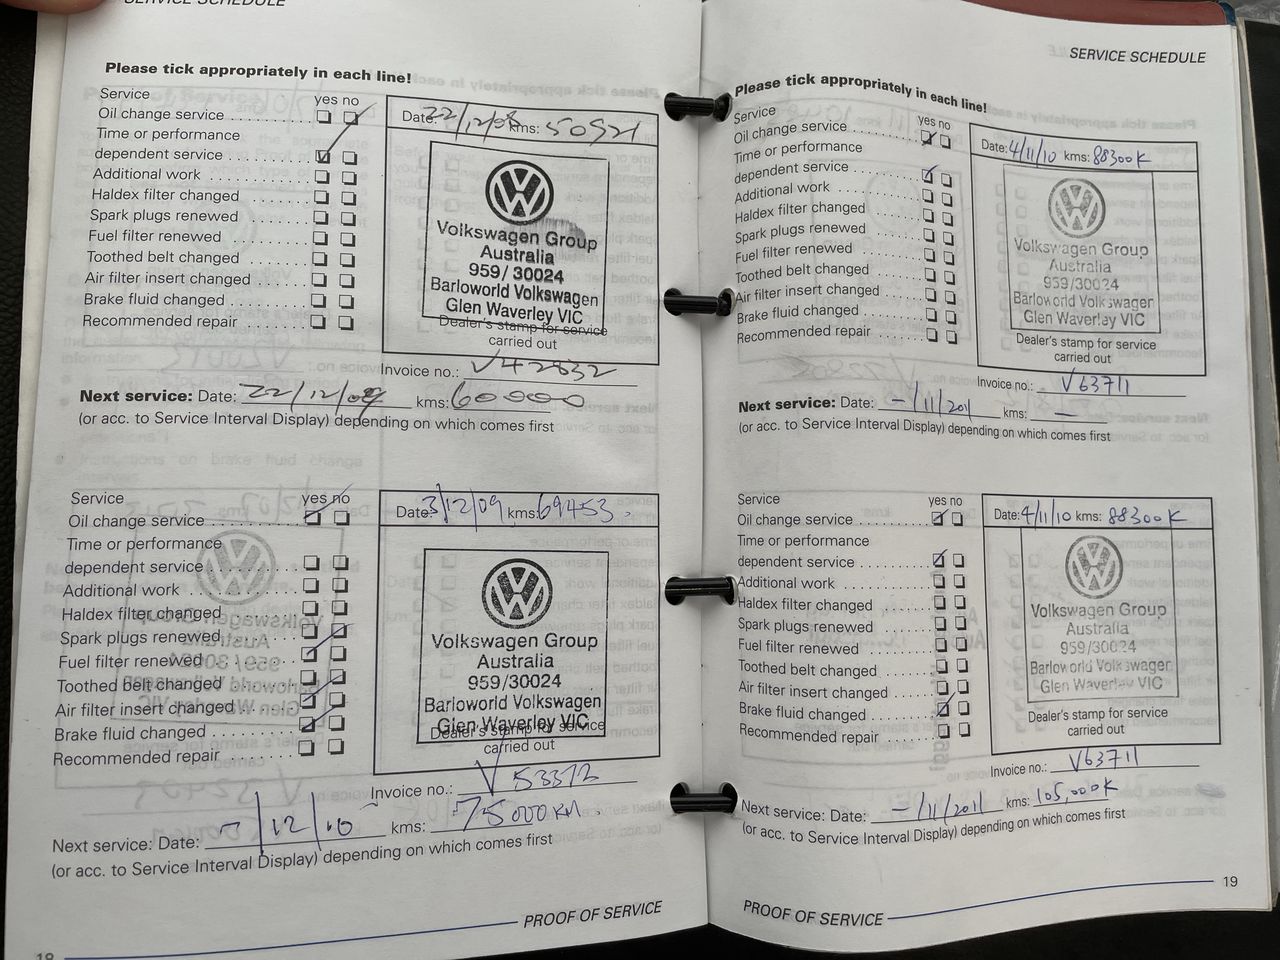 SERVICE SCHEDULE
Please tick appropriately in each line!
Service
yes no
Oil change service
Time or performance
dependent service
Additional work
Haldex filter changed
Spark plugs renewed
Fuel filter renewed
Toothed belt changed
Air filter insert changed
Brake fluid changed
Recommended repair
Date: 22/12/08 kms: 50921
Volkswagen Group
Australia
959/30024
Barloworld Volkswagen
Glen Waverley VIC
Dealer's stamp for service
carried out
Invoice no.: V42832
Next service: Date: 22/12/09 kms: 60000
(or acc. to Service Interval Display) depending on which comes first
Service
yes no
Oil change service
Time or performance
dependent service
Additional work
Haldex filter changed
Spark plugs renewed
Fuel filter renewed
Toothed belt changed
Air filter insert changed
Brake fluid changed
Recommended repair
Date: 3/12/09 kms: 69453
Volkswagen Group
Australia
959/30024
Barloworld Volkswagen
Glen Waverley VIC
Dealer's stamp for service
carried out
Invoice no.: V53372
Next service: Date: -/12/10 kms: 75000KM
(or acc. to Service Interval Display) depending on which comes first
PROOF OF SERVICE
18
SERVICE SCHEDULE
Please tick appropriately in each line!
Service
yes no
Oil change service
Time or performance
dependent service
Additional work
Haldex filter changed
Spark plugs renewed
Fuel filter renewed
Toothed belt changed
Air filter insert changed
Brake fluid changed
Recommended repair
Date: 4/11/10 kms: 88300K
Volkswagen Group
Australia
959/30024
Barloworld Volkswagen
Glen Waverley VIC
Dealer's stamp for service
carried out
Invoice no.: V63711
Next service: Date: -/11/2011 kms: -
(or acc. to Service Interval Display) depending on which comes first
Service
yes no
Oil change service
Time or performance
dependent service
Additional work
Haldex filter changed
Spark plugs renewed
Fuel filter renewed
Toothed belt changed
Air filter insert changed
Brake fluid changed
Recommended repair
Date: 4/11/10 kms: 88300K
Volkswagen Group
Australia
959/30024
Barloworld Volkswagen
Glen Waverley VIC
Dealer's stamp for service
carried out
Invoice no.: V63711
Next service: Date: -/11/2011 kms: 105,000K
(or acc. to Service Interval Display) depending on which comes first
19
PROOF OF SERVICE